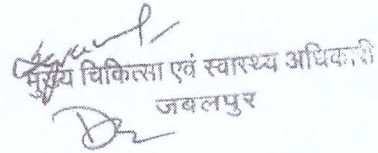 मुख्य चिकित्सा एवं स्वास्थ्य अधिकारी
जबलपुर